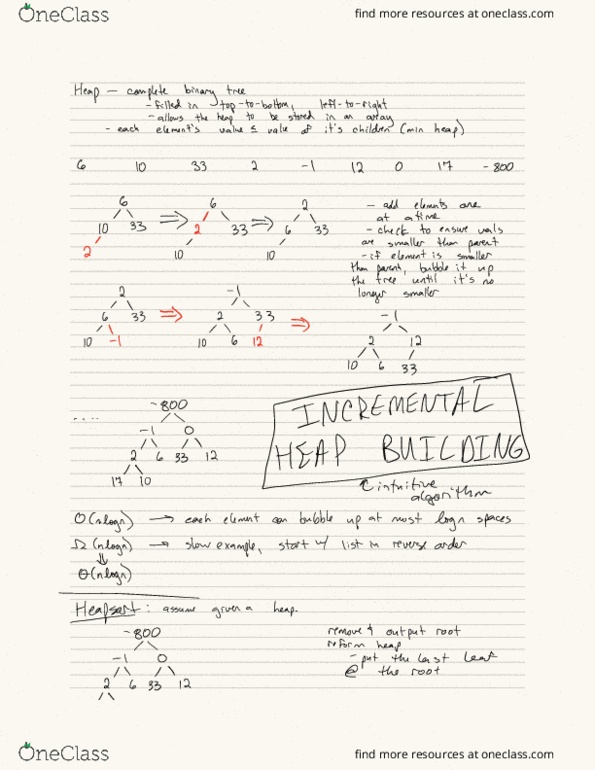 OneClass
find more resources at oneclass.com
Heap — complete binary tree
- filled in top-to-bottom, left-to-right
- allows the heap to be stored in an array
- each element's value ≤ value of it's children (min heap)
6 10 33 2 -1 12 0 17 -800
6
10 33
2
⇒
6
2 33
10
⇒
2
6 33
10
- add elements one
at a time
- check to ensure vals
are smaller than parent
- if element is smaller
than parent, bubble it up
the tree until it's no
longer smaller
2
6 33
10 -1
⇒
-1
2 33
10 6 12
⇒
-1
2 12
10 6 33
....
-800
-1 0
2 6 33 12
17 10
INCREMENTAL
HEAP BUILDING
↑ intuitive
algorithm
O(nlogn) → each element can bubble up at most logn spaces
Ω(nlogn) → slow example, start w/ list in reverse order
⇓
Θ(nlogn)
Heapsort: assume given a heap.
-800
-1 0
2 6 33 12
remove & output root
reform heap
- put the last leaf
@ the root
OneClass
find more resources at oneclass.com